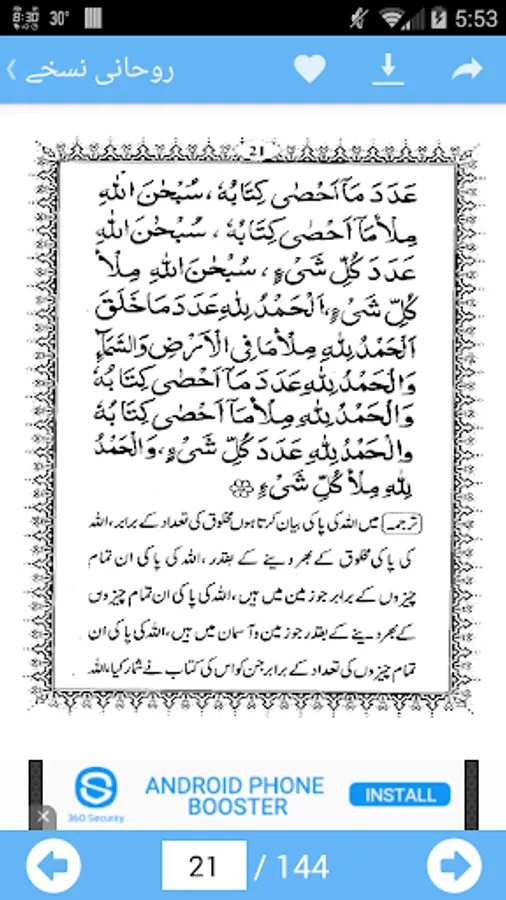 8:30 30° 5:53
روحانی نسخے
21
عَدَدَ مَآ اَحْصٰی کِتَابُهٗ ، سُبْحٰنَ اللّٰهِ
مِلْأَ مَآ اَحْصٰی کِتَابُهٗ ، سُبْحٰنَ اللّٰهِ
عَدَدَ کُلِّ شَیْءٍ ، سُبْحٰنَ اللّٰهِ مِلْأَ
کُلِّ شَیْءٍ، اَلْحَمْدُ لِلّٰهِ عَدَدَ مَا خَلَقَ
اَلْحَمْدُ لِلّٰهِ مِلْأَ مَا فِی الْاَرْضِ وَالسَّمَآءِ
وَالْحَمْدُ لِلّٰهِ عَدَدَ مَآ اَحْصٰی کِتَابُهٗ
وَالْحَمْدُ لِلّٰهِ مِلْأَ مَآ اَحْصٰی کِتَابُهٗ
وَالْحَمْدُ لِلّٰهِ عَدَدَ کُلِّ شَیْءٍ، وَالْحَمْدُ
لِلّٰهِ مِلْأَ کُلِّ شَیْءٍ
ترجمہ میں اللہ کی پاکی بیان کرتا ہوں مخلوق کی تعداد کے برابر، اللہ
کی پاکی مخلوق کے بھر دینے کے بقدر ، اللہ کی پاکی ان تمام
چیزوں کے برابر جو زمین میں ہیں ، اللہ کی پاکی ان تمام چیزوں
کے بھر دینے کے بقدر جو زمین و آسمان میں ہیں ، اللہ کی پاکی ان
تمام چیزوں کی تعداد کے برابر جن کو اس کی کتاب نے شمار کیا، اللہ
ANDROID PHONE
BOOSTER
INSTALL
360 Security
21 / 144